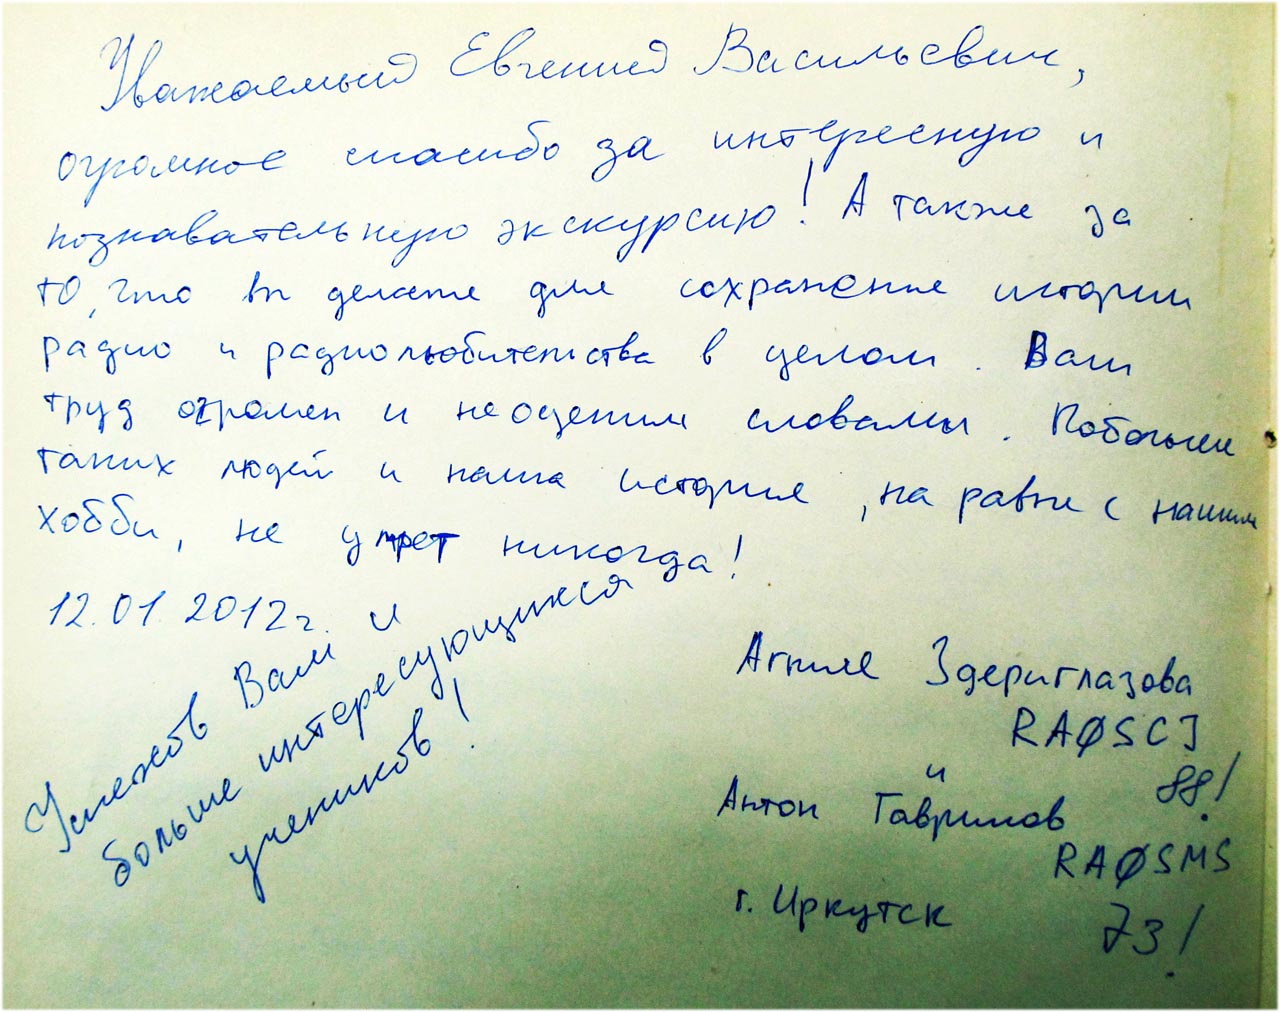 Уважаемый Евгений Васильевич,
огромное спасибо за интересную и
познавательную экскурсию! А также за
то, что вы делаете для сохранение истории
радио и радиолюбительства в целом. Ваш
труд огромен и неоценим словами. Побольше
таких людей и наша история, на равне с нашим
хобби, не умрет никогда!
12.01.2012г.
Успехов Вам и
больше интересующихся
учеников!
Агние Здериглазова
RAØSCJ
88!
и
Антон Гаврилов
RAØSMS
г. Иркутск
73!